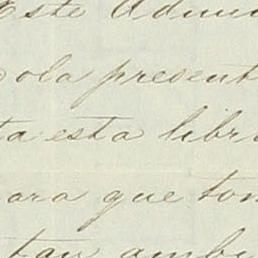 Este Admi
ola present
ta esta libr
ara que tom
tan ambi